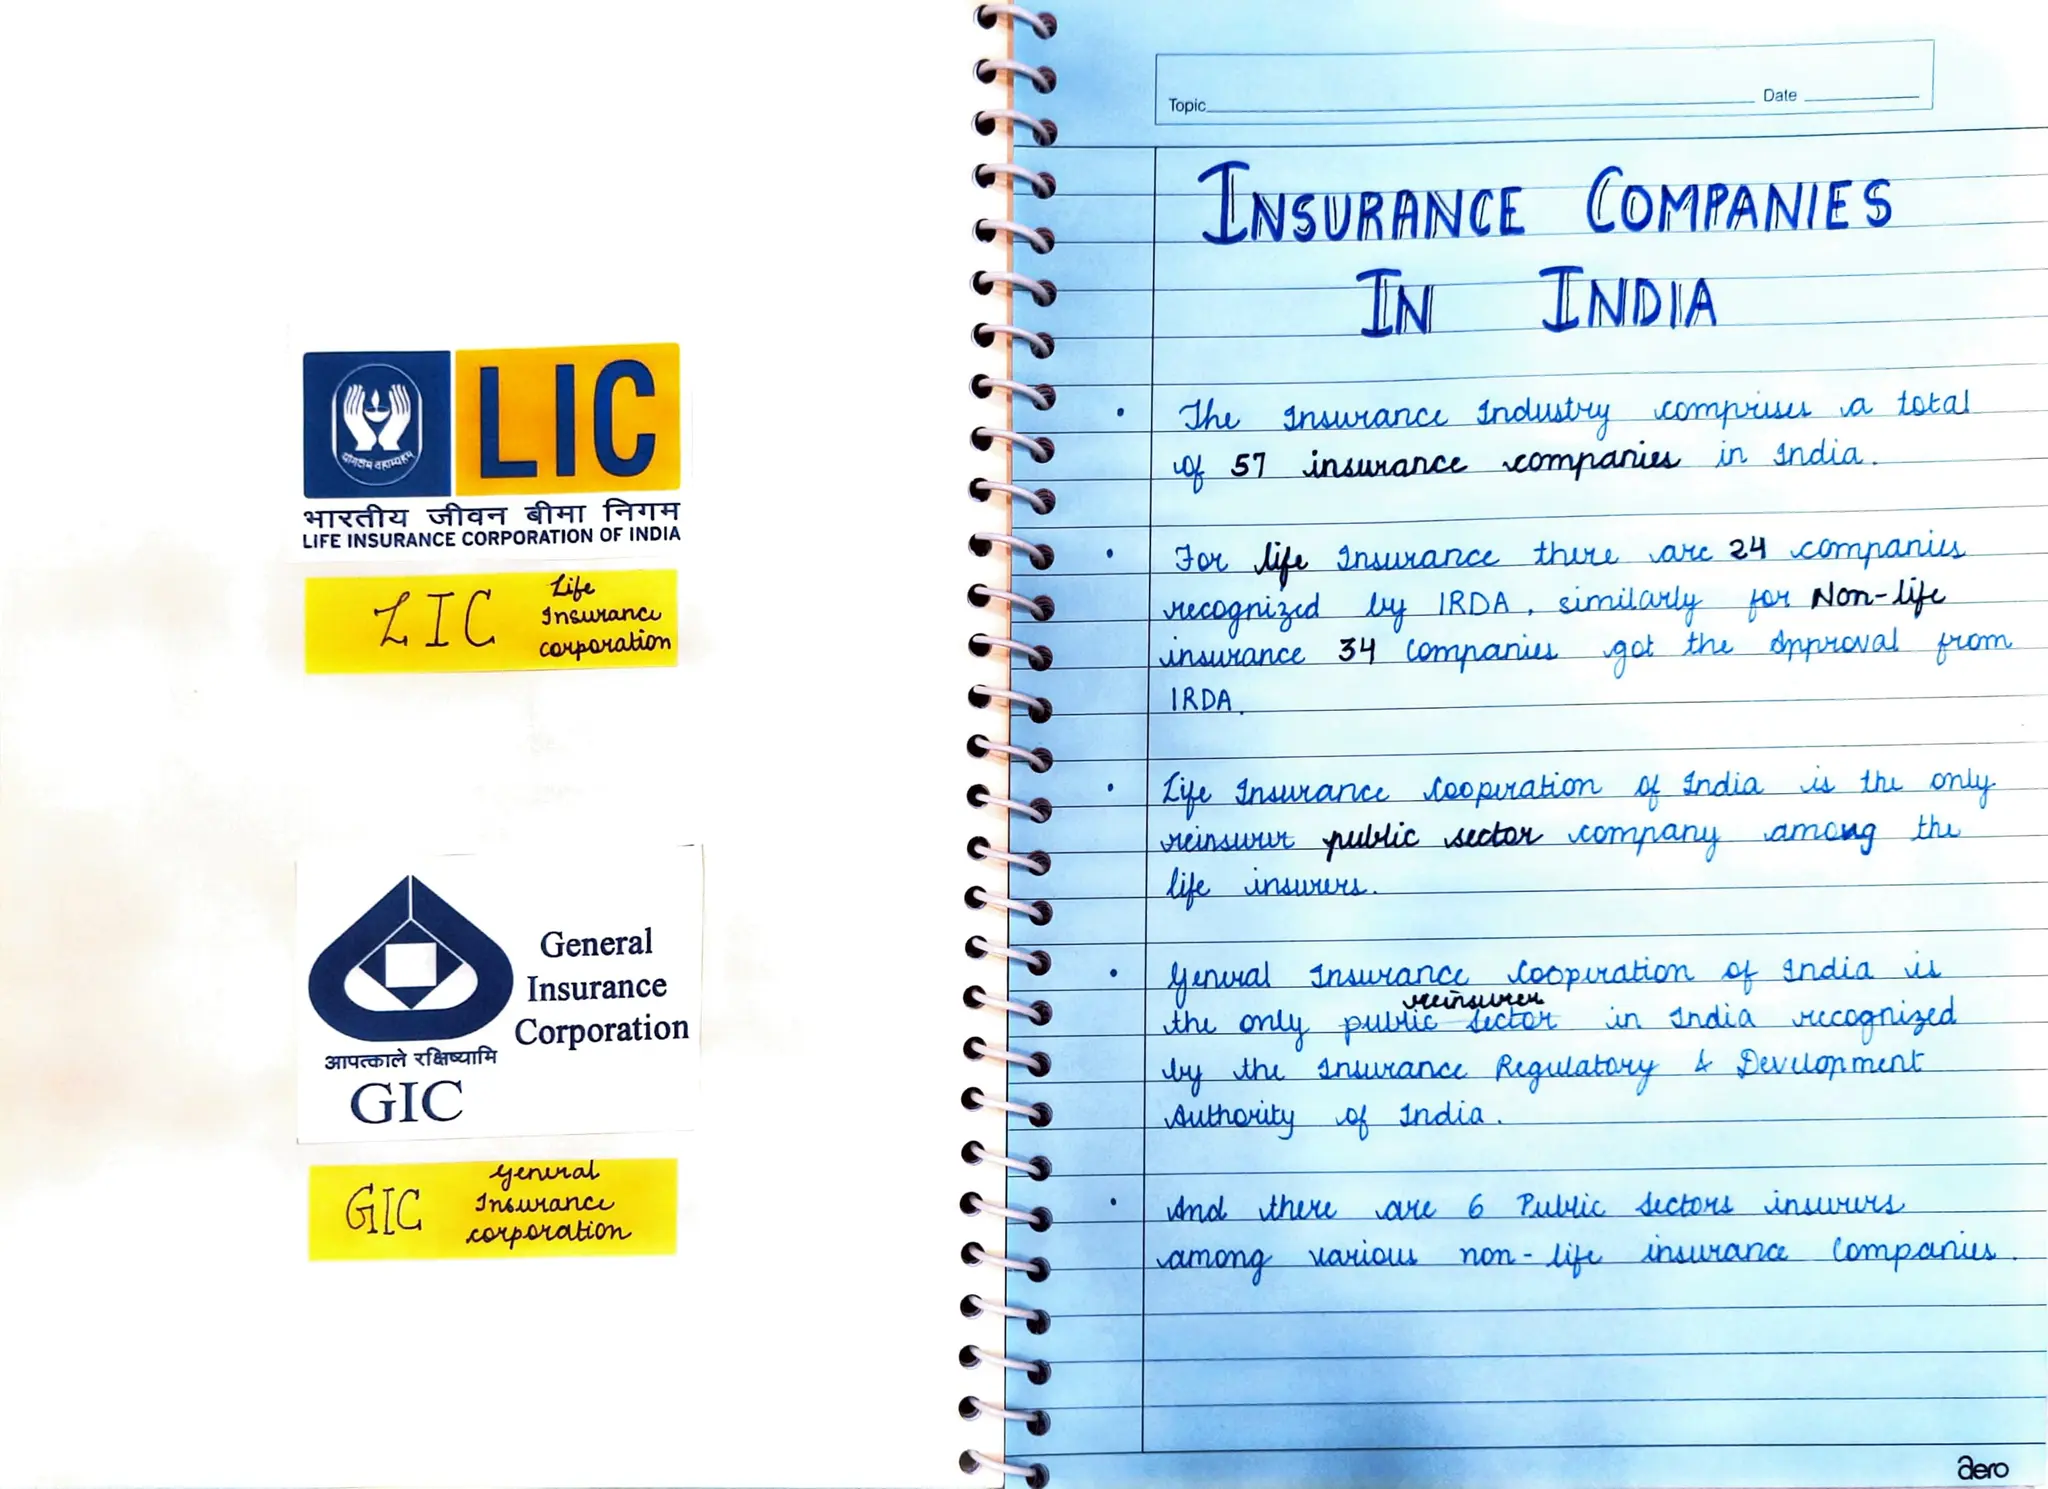 LIC
योगक्षेमं वहाम्यहम्
भारतीय जीवन बीमा निगम
LIFE INSURANCE CORPORATION OF INDIA
LIC Life
Insurance
corporation
General
Insurance
Corporation
आपत्काले रक्षिष्यामि
GIC
GIC General
Insurance
corporation
Topic Date
INSURANCE COMPANIES
IN INDIA
• The Insurance Industry comprises a total
of 57 insurance companies in India.
• For life Insurance there are 24 companies
recognized by IRDA, similarly for Non-life
insurance 34 Companies got the Approval from
IRDA.
• Life Insurance Cooperation of India is the only
reinsurer public sector company among the
life insurers.
• General Insurance Cooperation of India is
reinsurer
the only public sector in India recognized
by the Insurance Regulatory & Development
Authority of India.
• And there are 6 Public Sectors insurers
among various non-life insurance Companies.
aero